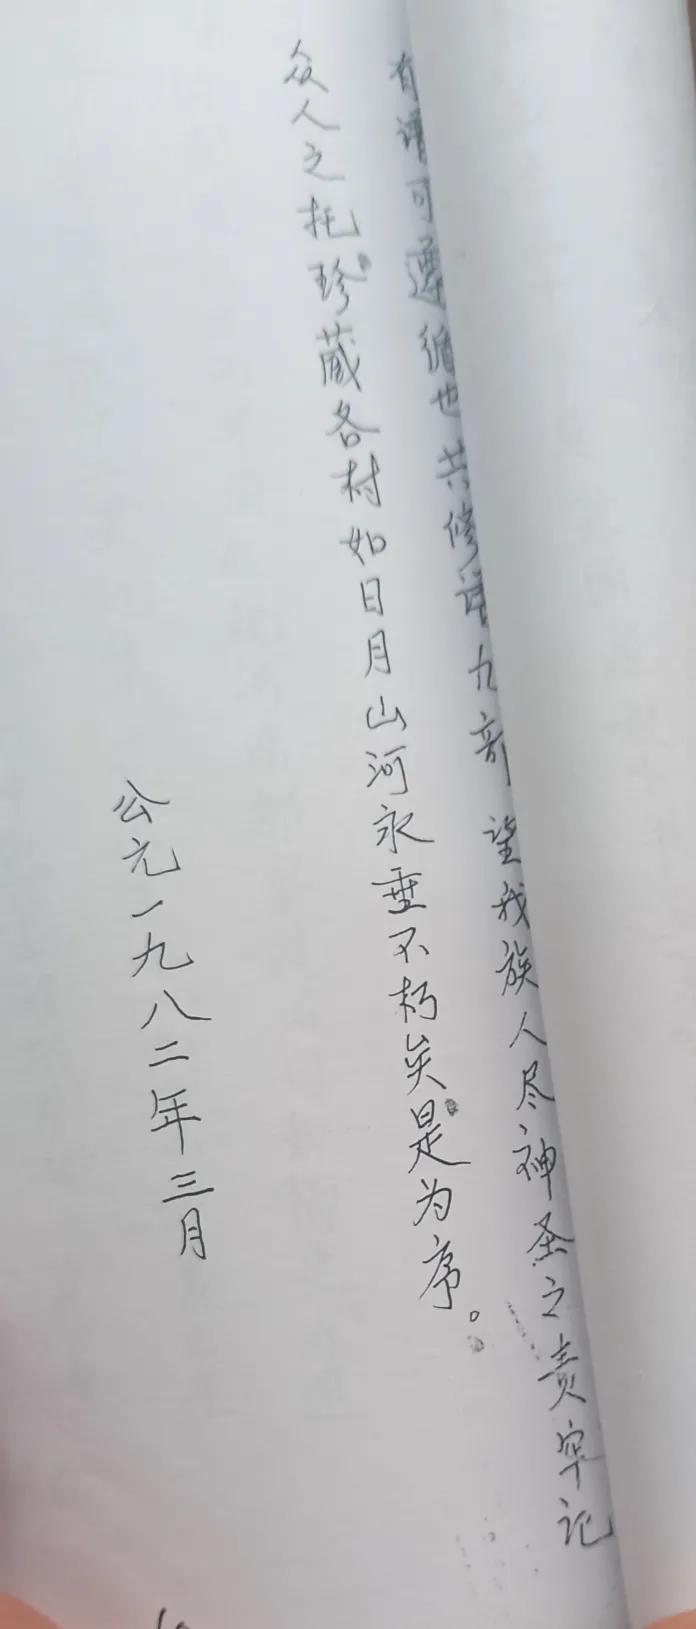 有谱可遵循也共修谱九部望我族人尽神圣之责牢记
众人之托珍藏各村如日月山河永垂不朽矣是为序。
公元一九八二年三月